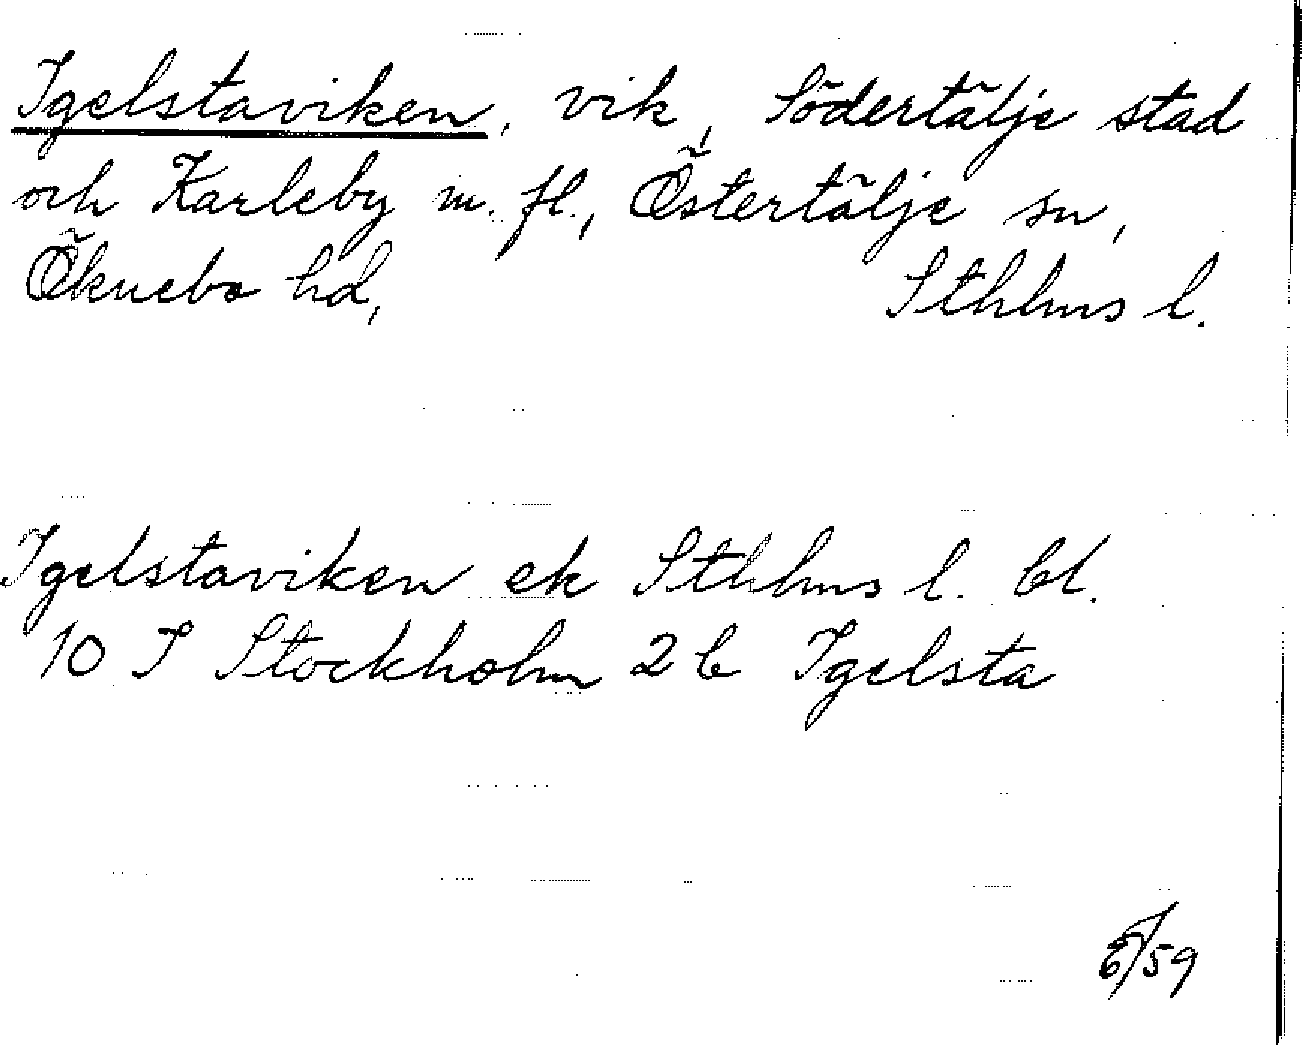 Igelstaviken, vik, Södertälje stad
och Karleby m. fl., Östertälje sn,
Öknebo hd, Sthlms l.
Igelstaviken ek Sthlms l. bl.
10 I Stockholm 2 b Igelsta
/59